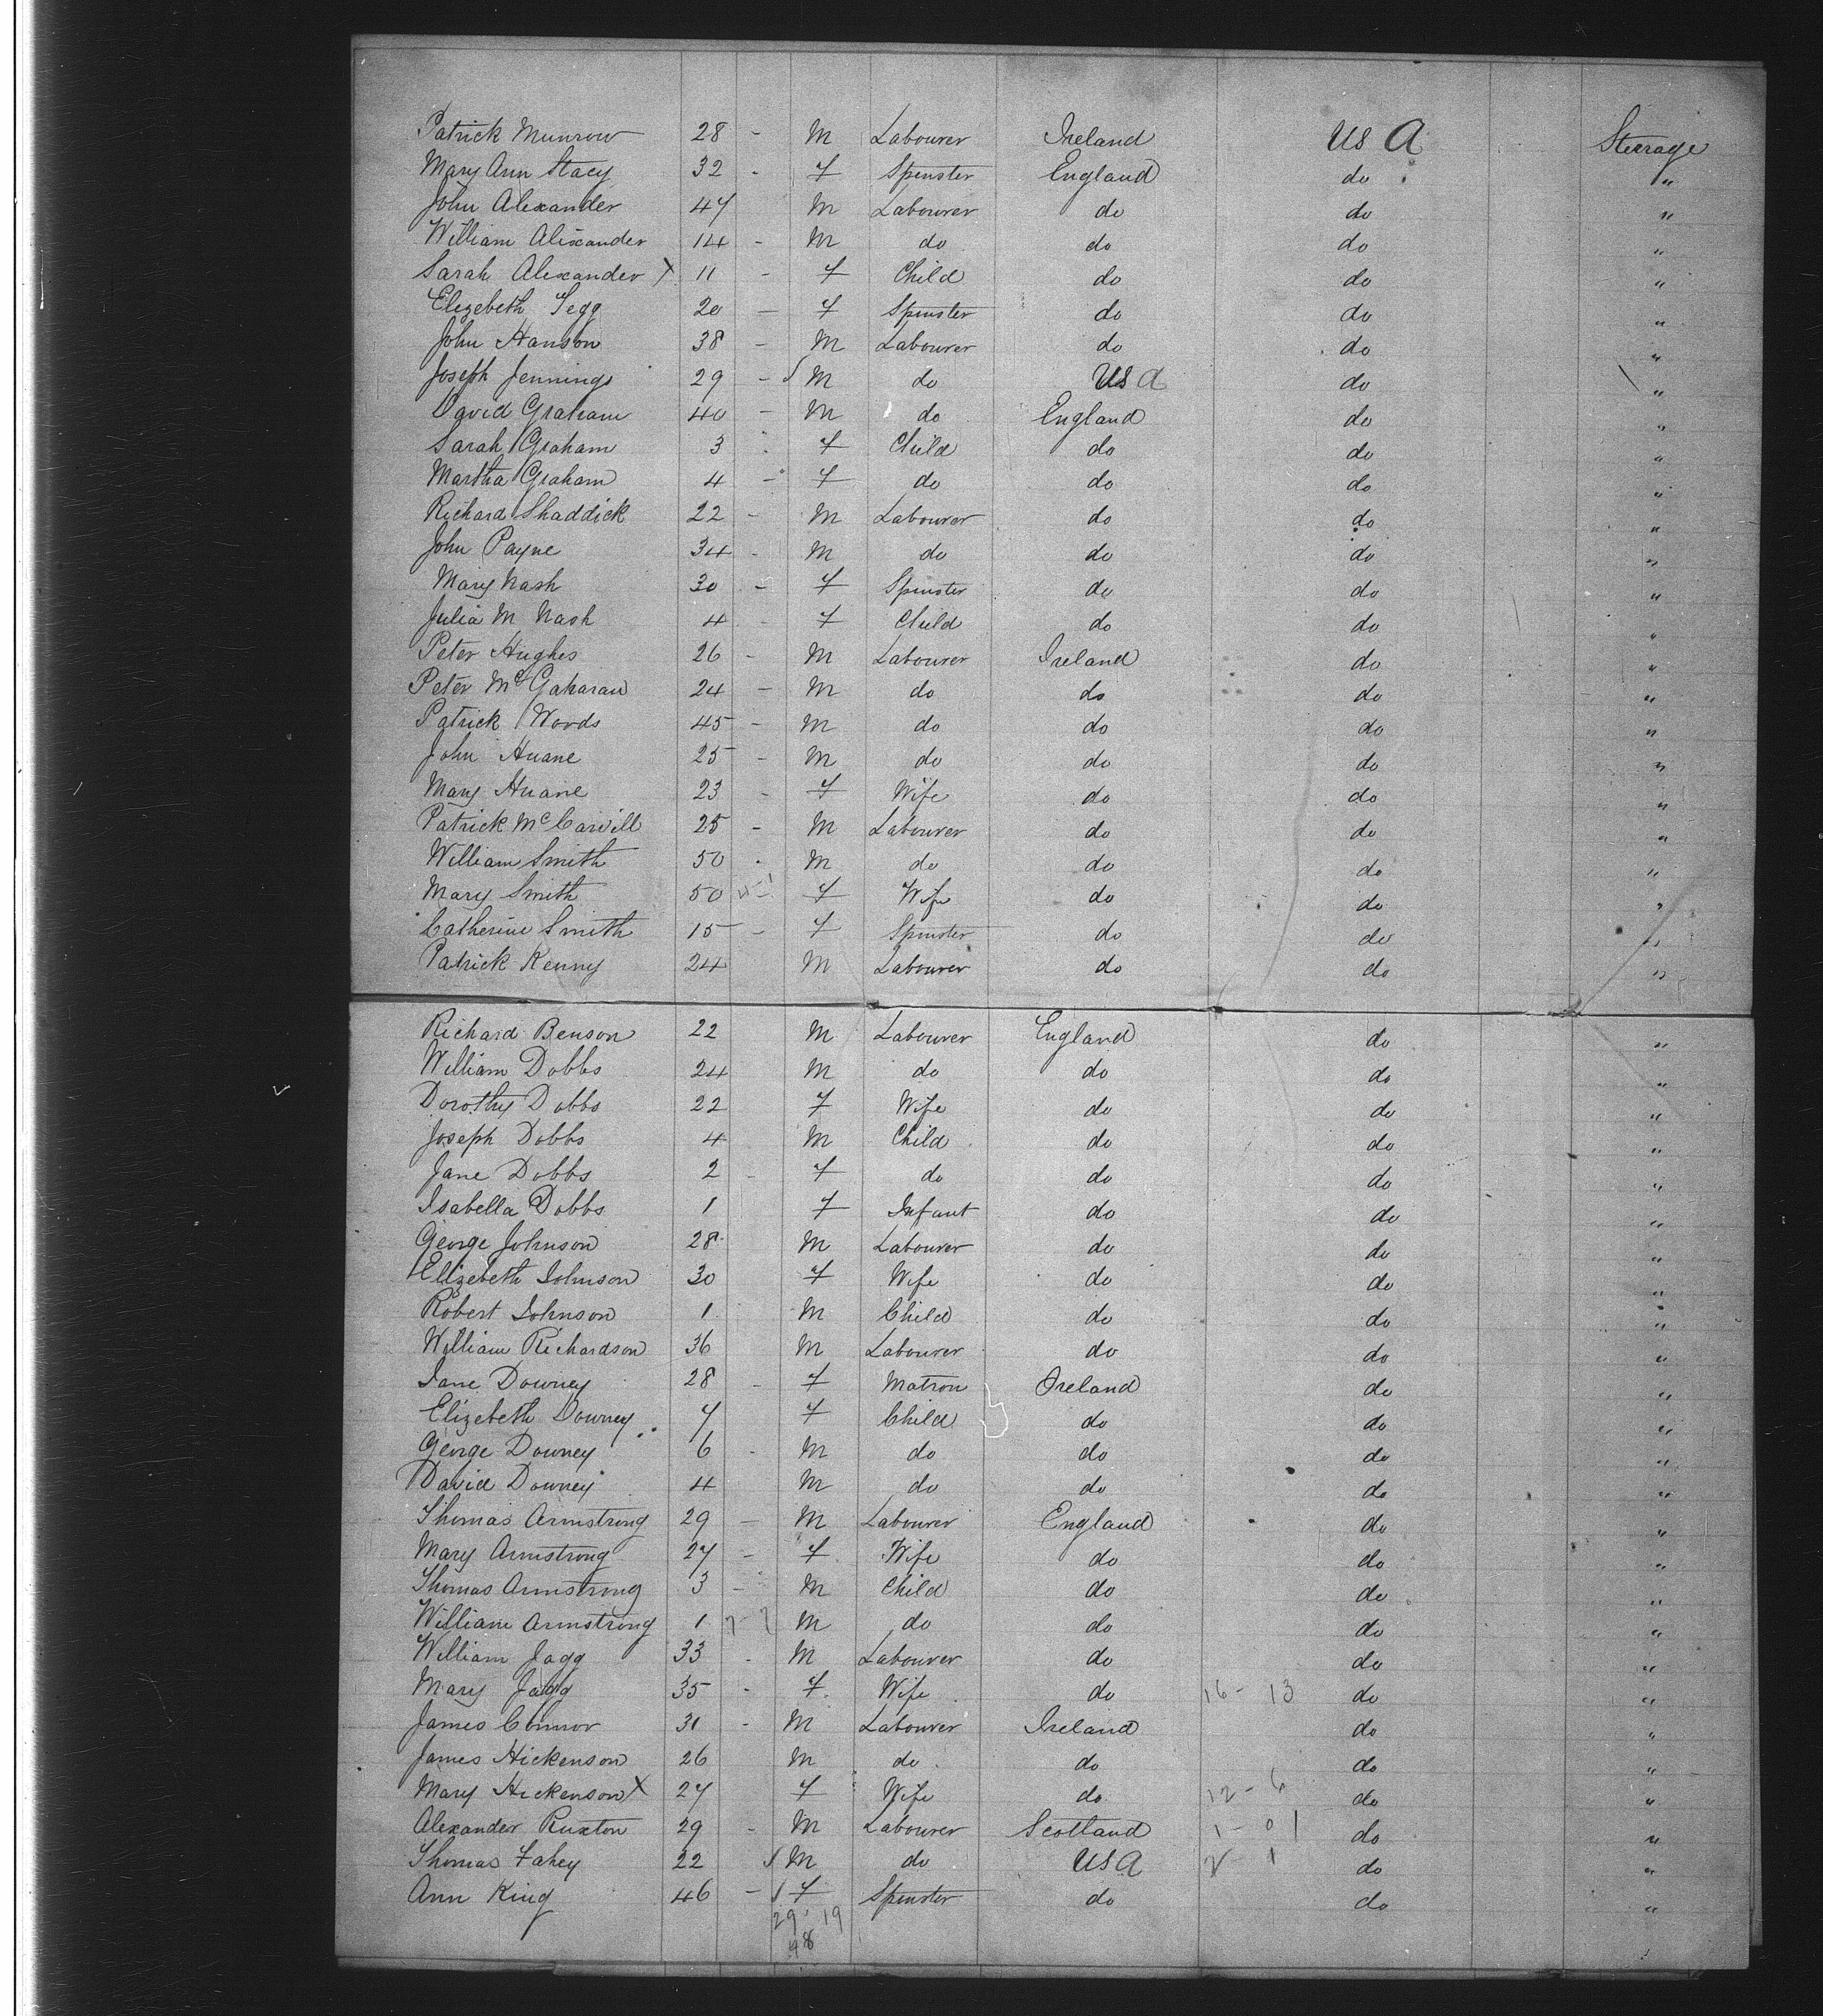 Patrick Munrow 28 - M Labourer Ireland US A Steerage
Mary Ann Stacy 32 - F Spinster England do "
John Alexander 47 M Labourer do do "
William Alexander 14 - M do do do "
Sarah Alexander X 11 - F Child do do "
Elezebeth Tegg 20 - F Spinster do do "
John Hanson 38 - M Labourer do do "
Joseph Jennings 29 - M do US A do "
David Graham 40 - M do England do "
Sarah Graham 3 F Child do do "
Martha Graham 4 - F do do do "
Richard Shaddick 22 - M Labourer do do "
John Payne 34 - M do do do "
Mary Nash 30 - F Spinster do do "
Julia M Nash 4 - F Child do do "
Peter Hughes 26 - M Labourer Ireland do "
Peter McGaharan 24 - M do do do "
Patrick Woods 45 - M do do do "
John Huane 25 - M do do do "
Mary Huane 23 - F Wife do do "
Patrick McCarvill 25 - M Labourer do do "
William Smith 50 - M do do do "
Mary Smith 50 F Wife do do "
Catherine Smith 15 - F Spinster do do "
Patrick Kenny 24 M Labourer do do "
Richard Benson 22 M Labourer England do "
William Dobbs 24 M do do do "
Dorothy Dobbs 22 F Wife do do "
Joseph Dobbs 4 M Child do do "
Jane Dobbs 2 - F do do do "
Isabella Dobbs 1 F Infant do do "
George Johnson 28 M Labourer do do "
Elizebeth Johnson 30 F Wife do do "
Robert Johnson 1 M Child do do "
William Richardson 36 M Labourer do do "
Jane Downey 28 - F Matron Ireland do "
Elizebeth Downey 7 F Child do do "
George Downey 6 - M do do do "
David Downey 4 M do do do "
Thomas Armstrong 29 - M Labourer England do "
Mary Armstrong 27 - F Wife do do "
Thomas Armstrong 3 - M Child do do "
William Armstrong 1 M do do do "
William Jagg 33 - M Labourer do do "
Mary Jagg 35 - F Wife do 16 - 13 do "
James Connor 31 - M Labourer Ireland do "
James Hickenson 26 M do do do "
Mary Hickenson X 27 F Wife do 12 - 6 do "
Alexander Ruxton 29 - M Labourer Scotland 1 - 0 do "
Thomas Fahey 22 M do USA 2 - 1 do "
Ann King 46 - F Spinster do do "
29 19
48